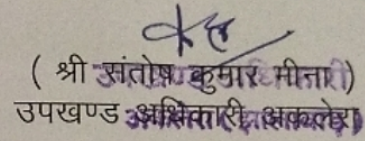 ( श्री संतोष कुमार मीना )
उपखण्ड अधिकारी, अकलेरा